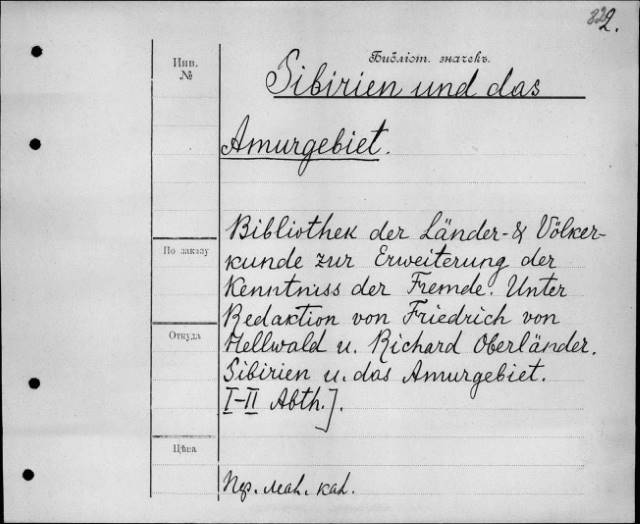 2.
Инв.
№
Библіот. значекъ.
Sibirien und das
Amurgebiet.
Bibliothek der Länder- & Völker-
kunde zur Erweiterung der
По заказу
Kenntniss der Fremde. Unter
Redaktion von Friedrich von
Откуда
Hellwald u. Richard Oberländer.
Sibirien u. das Amurgebiet.
I-II Abth.].
Цѣна
кад.